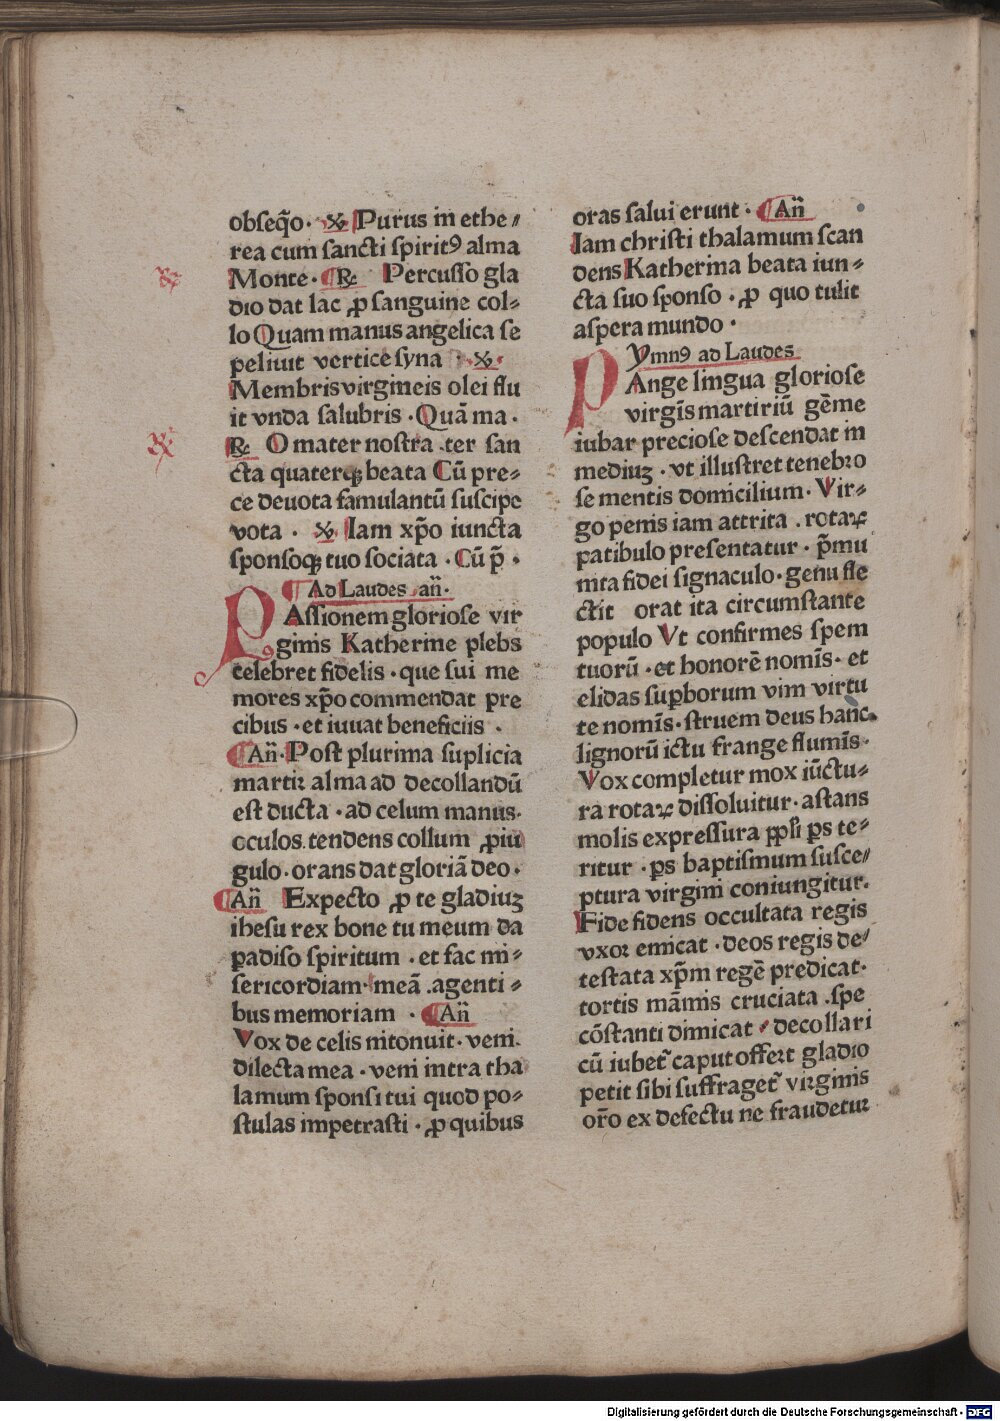 obseq̃o· ℣ Purus in ethe⸗
rea cum sancti spiritꝰ alma
Monte· ¶ ℟ Percusso gla
dio dat lac ꝓ sanguine col⸗
lo Quam manus angelica se
peliuit vertice syna · ℣·
Membris virgineis olei flu
it vnda salubris · Quā ma ·
℟ O mater nostra ter san
cta quaterqꝫ beata Cū pre⸗
ce deuota famulantū suscipe
vota · ℣ Iam xp̄o iuncta
sponsoqꝫ tuo sociata · Cū p̄ ·
¶ Ad Laudes an̄·
PAssionem gloriose vir
ginis Katherine plebs
celebret fidelis · que sui me
mores xp̄o commendat pre
cibus · et iuuat beneficiis ·
¶ An̄· Post plurima suplicia
martir alma ad decollandū
est ducta · ad celum manus·
oculos tendens collum ꝓiu
gulo · orans dat gloriā deo ·
¶ An̄ Expecto ꝓ te gladiuꝫ
ihesu rex bone tu meum da
ꝑadiso spiritum · et fac mi⸗
sericordiam· meā .agenti⸗
bus memoriam · ¶ An̄
Vox de celis intonuit· veni·
dilecta mea · veni intra tha
lamum sponsi tui quod po⸗
stulas impetrasti · ꝓ quibus
oras salui erunt · ¶ An̄
Iam christi thalamum scan
dens Katherina beata iun⸗
cta suo sponso · ꝓ quo tulit
aspera mundo ·
Ymnꝰ ad Laudes
PAnge lingua gloriose
virgīs martiriū gēme
iubar preciose descendat in
mediuꝫ · vt illustret tenebro
se mentis domicilium· Vir⸗
go penis iam attrita . rotaꝝ
patibulo presentatur · p̄mu
nita fidei signaculo· genu fle
ctit orat ita circumstante
populo Vt confirmes spem
tuorū · et honorē nomīs· et
elidas suꝑborum vim virtu
te nomīs· struem deus hanc
lignorū ictu frange flumīs·
Vox completur mox iūctu⸗
ra rotaꝝ dissoluitur· astans
molis expressura ꝓpl'i ꝑs te⸗
ritur · ꝑs baptismum susce⸗
ptura virgini coniungitur·
Fide fidens occultata regis
vxor emicat · deos regis de⸗
testata xp̄m regē predicat·
tortis māmis cruciata .spe
cōstanti dimicat · decollari
cū iubet᷑ caput offert gladio
petit sibi suffraget᷑ virginis
or̄o ex defectu ne fraudetur
Digitalisierung gefördert durch die Deutsche Forschungsgemeinschaft - DFG